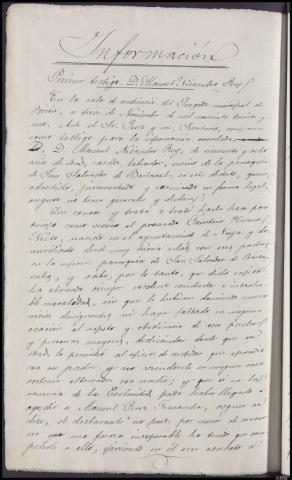 Información
Primer testigo. D. Manuel Nicandro Rey
En la sala de audiencia del Juzgado municipal de
Brión, a trece de Noviembre de mil novecientos treinta y
uno. Ante el Sr. Juez y mi, Secretario, compareció
como testigo para la información
D. Manuel Nicandro Rey, de cincuenta y ocho
años de edad, casado, labrador, vecino de la parroquia
de San Salvador de Bastavales, en este distrito, quien
advertido, juramentado y en forma legal,
aseguró no tener y declara:
Que conoce y trata a hasta hace poco
tiempo como vecino al procesado Faustino
Nieto, nacido en el ayuntamiento de Noya y do-
miciliado desde muy niño con sus padres
en la referida parroquia de San Salvador de Basta-
vales, y sabe, por lo tanto, que dicho sujeto
ha observado siempre excelente conducta e intacha-
ble moralidad, sin que le hubiera dominado nunca
vicios denigrantes, ni haya faltado en ninguna
ocasión al respeto y obediencia de sus padres
y personas mayores, dedicándose desde que su
edad lo permitió al oficio de que aprendió
con su padre y no viéndosele en ninguna
sostener altercados con nadie; y que si en la
de la Esclavitud pudo haber llegado a
agredir a Manuel Pérez Fernández, según se
dice, el declarante no puede por menos de
cer que una fuerza irresistible ha tenido que
pelerle a ello, en él